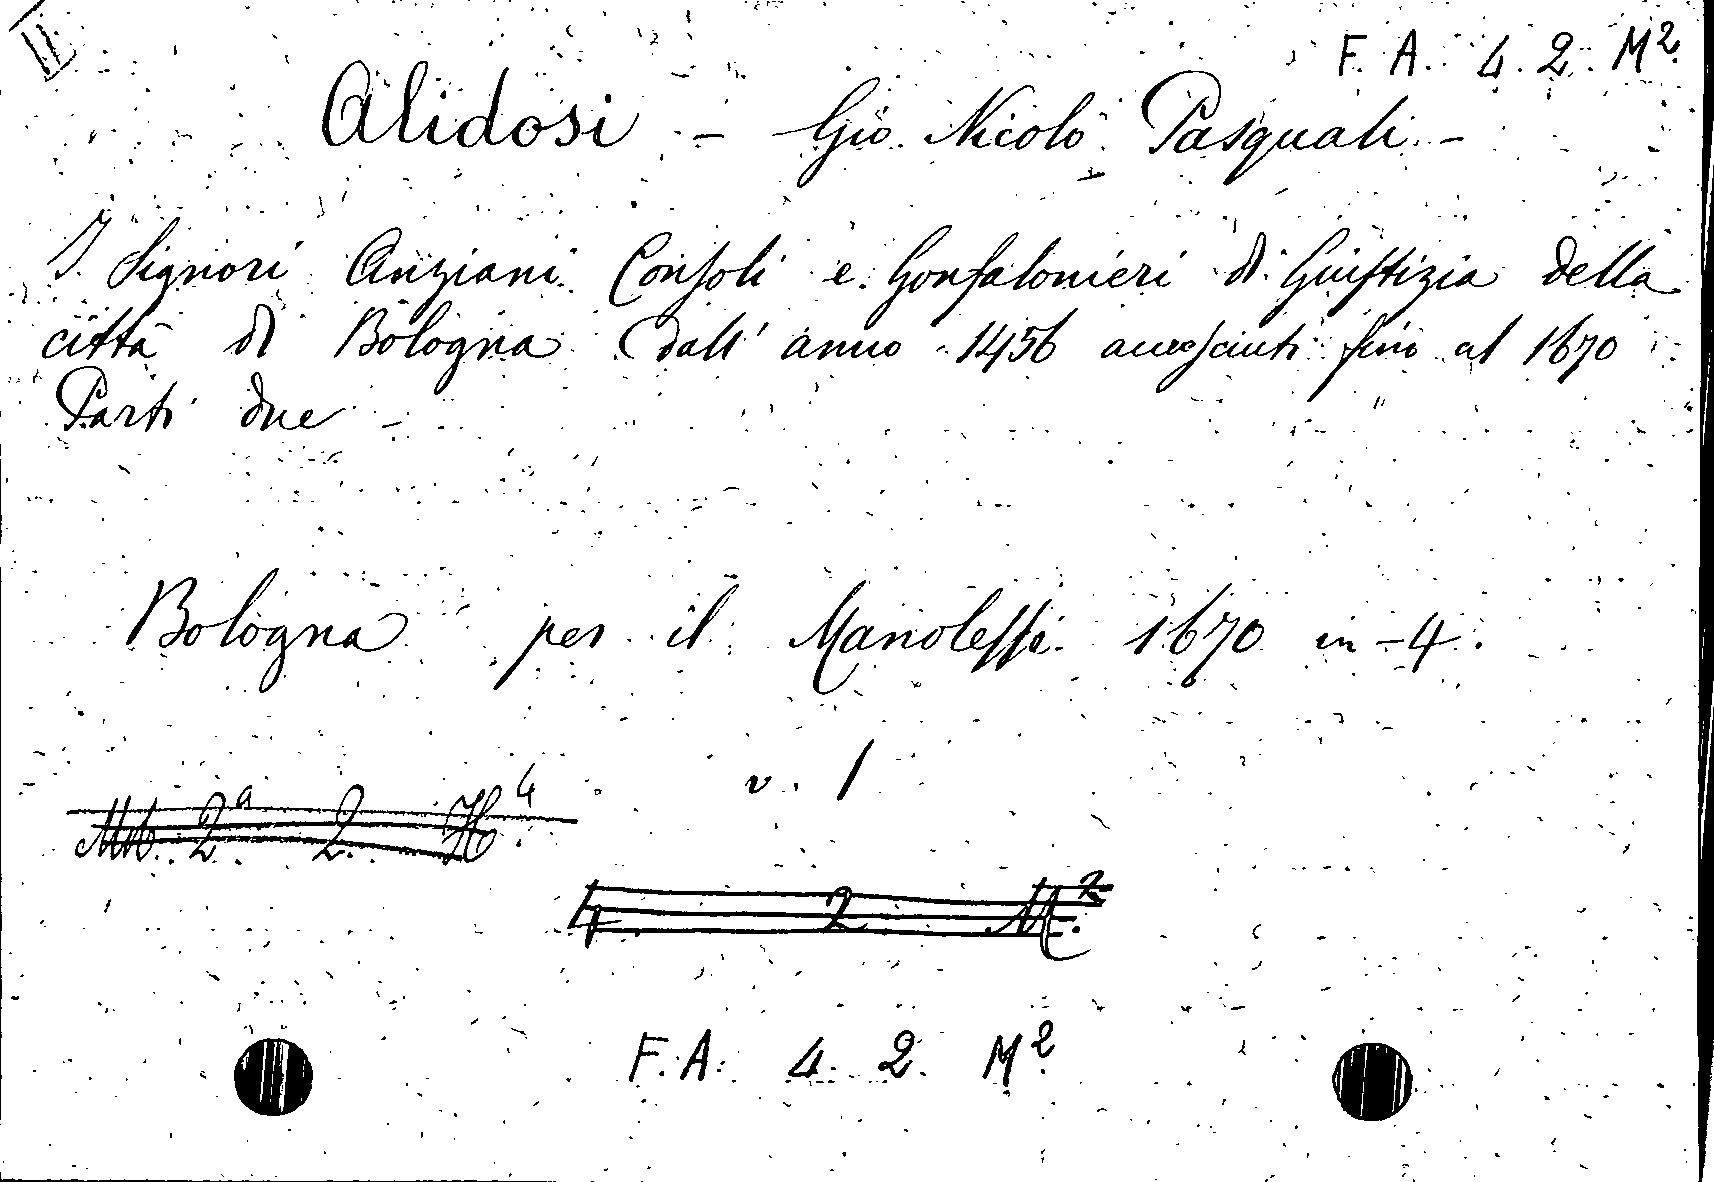 II
F. A. 4. 2. M²
Alidosi - Gio. Nicolò Pasquali -
I Signori Anziani Consoli e Gonfalonieri di Giustizia della
città di Bologna dall' anno 1456 accresciuti fino al 1670
Parti due -
Bologna per il Manolessi 1670 in-4.
v. 1
2ª 2. H⁴
4 2 M²
F. A. 4. 2. M²